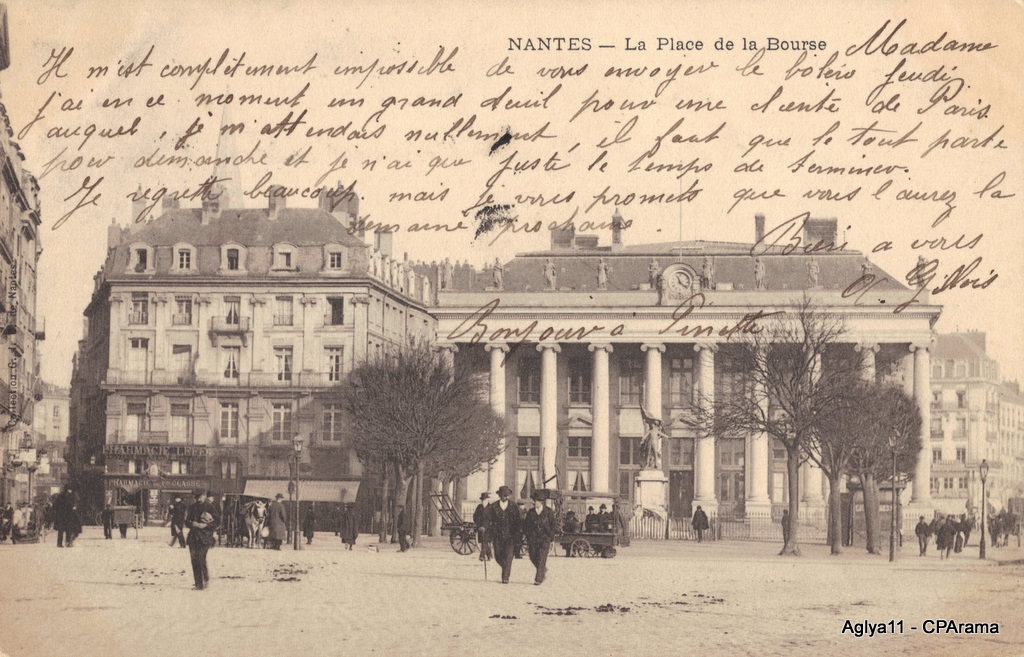 NANTES — La Place de la Bourse
Madame
Il m'est complètement impossible de vous envoyer le boléro jeudi,
j'ai en ce moment un grand deuil pour une cliente de Paris
auquel, je m'attendais nullement, il faut que le tout parte
pour dimanche et je n'ai que juste le temps de terminer.
Je regrette beaucoup mais je vous promets que vous l'aurez la
semaine prochaine
Bien a vous
Bonjour a Ginette
PHARMACIE LEFE
PHARMACIE DE 1re CLASSE
Aglya11 - CPArama